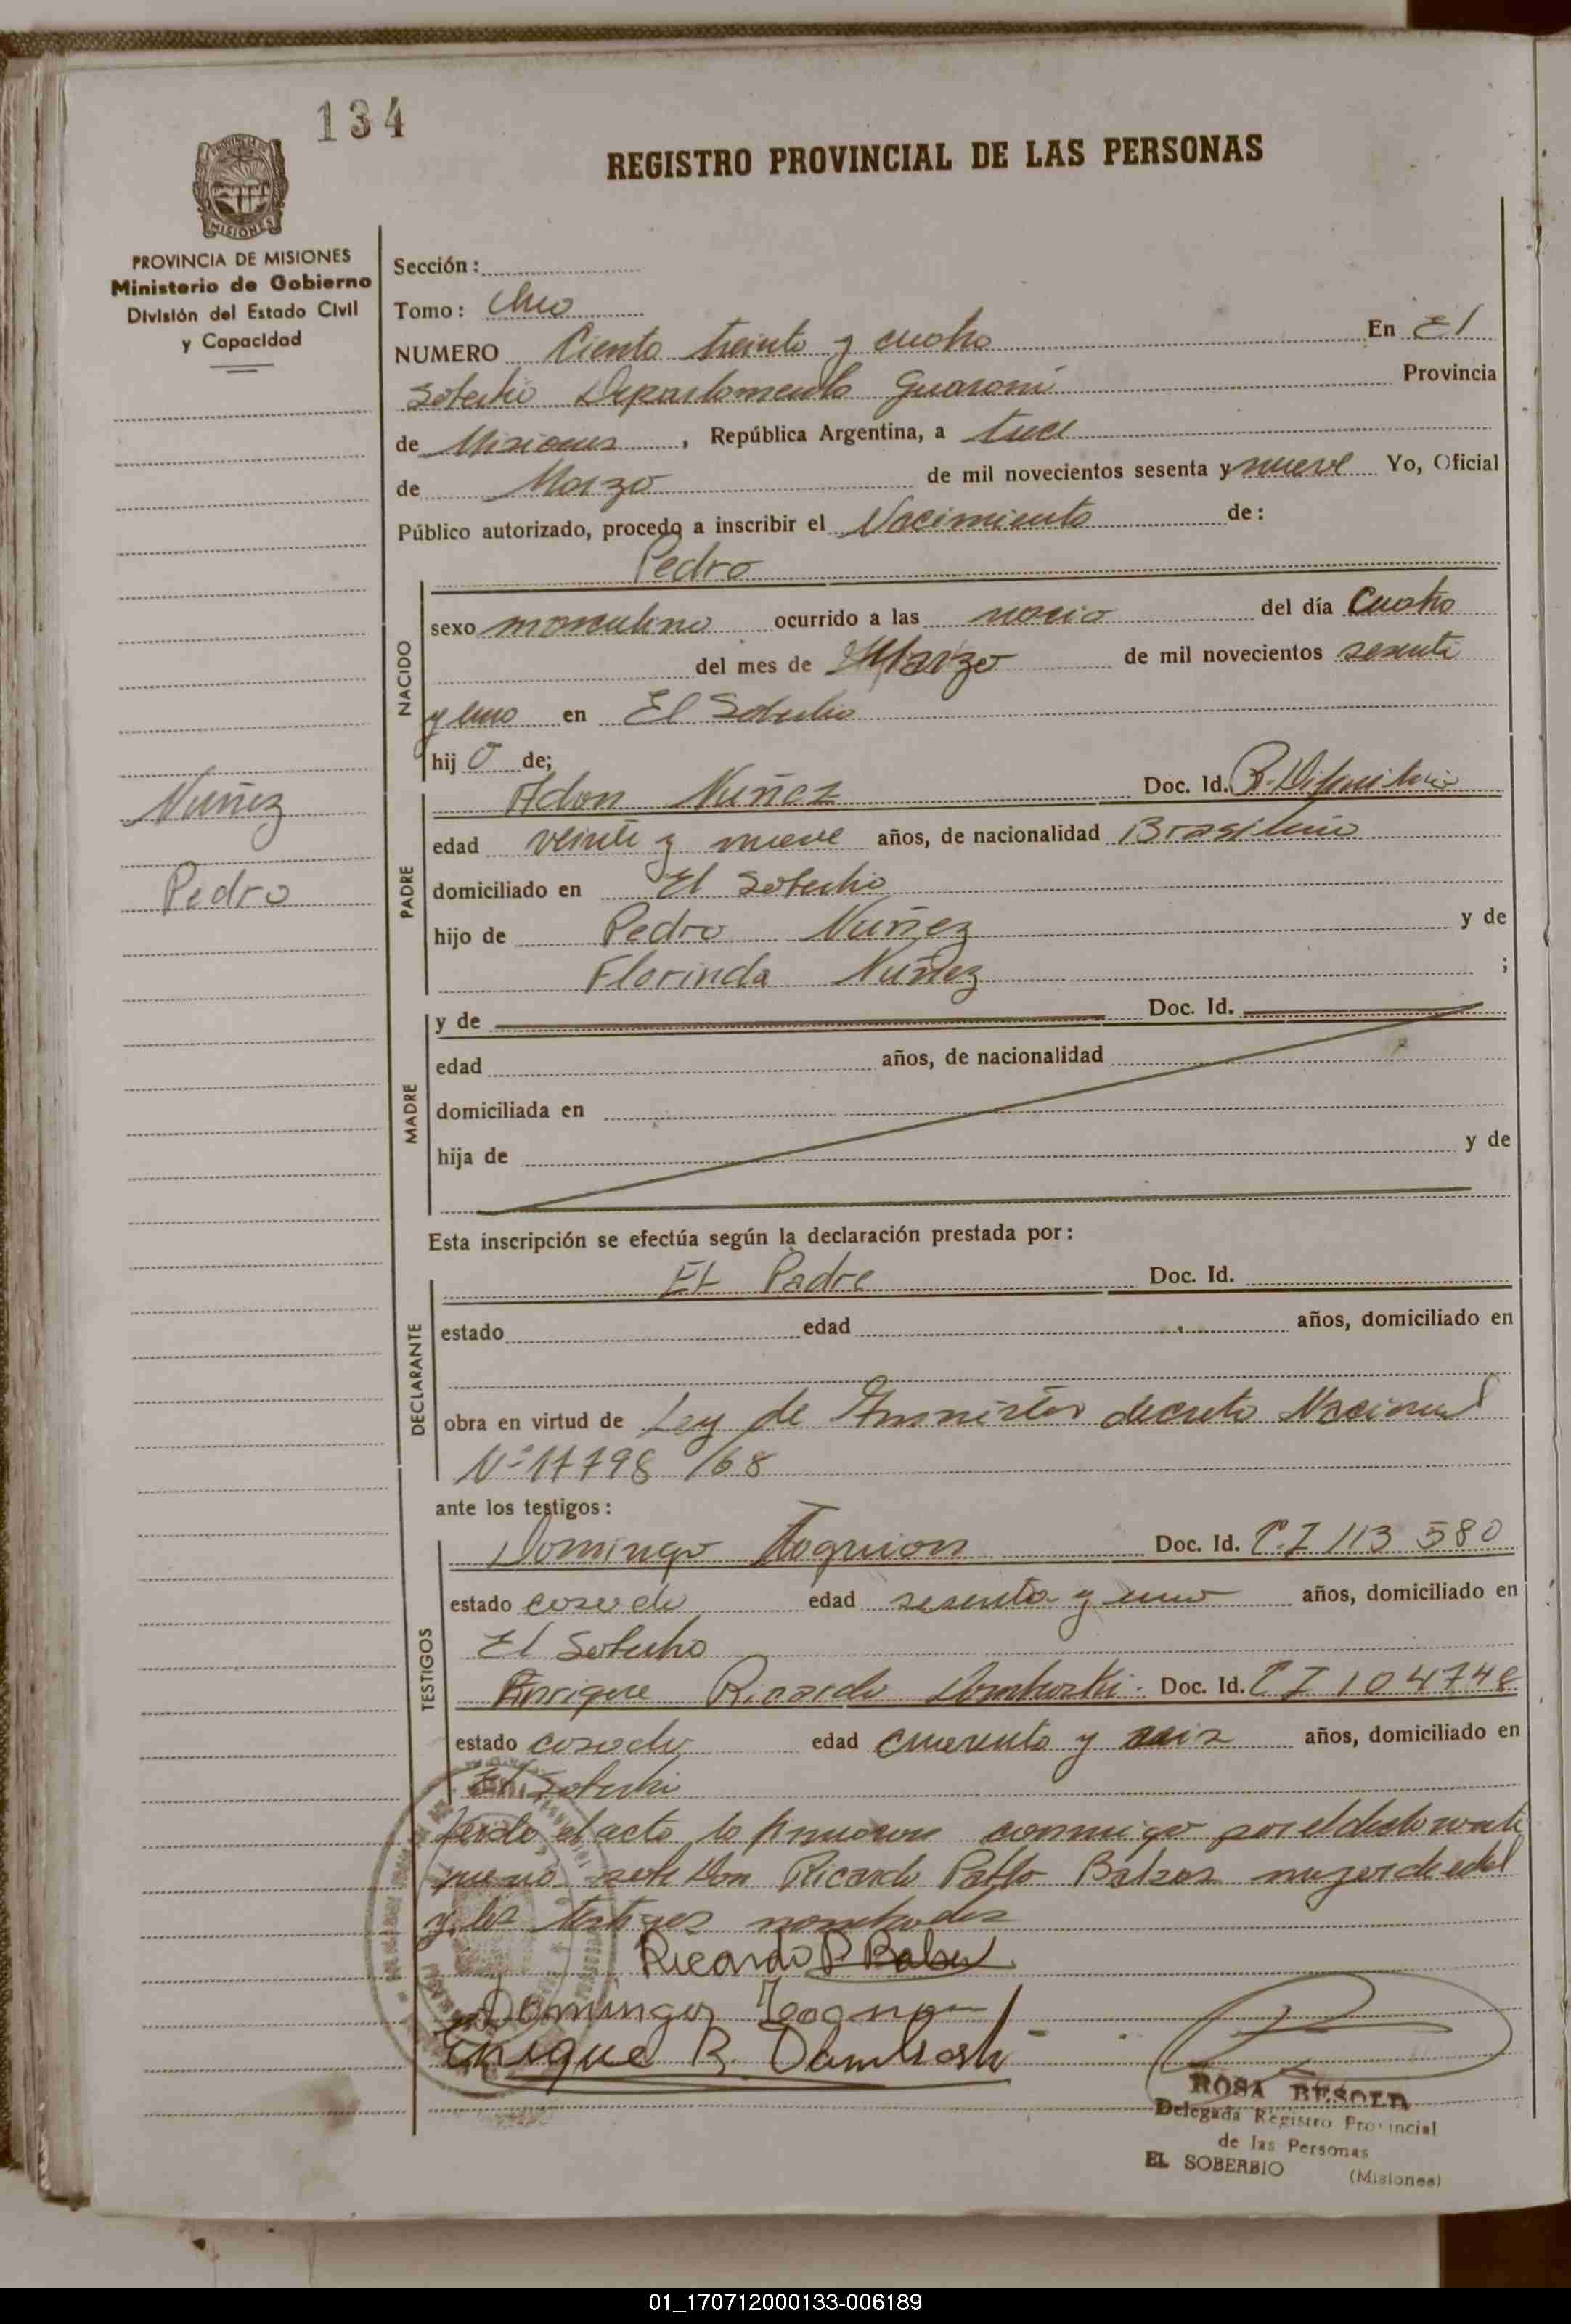 134
REGISTRO PROVINCIAL DE LAS PERSONAS
MISIONES
PROVINCIA DE MISIONES
Ministerio de Gobierno
División del Estado Civil
y Capacidad
Sección:
Tomo: Uno
NUMERO Ciento treinta y cuatro En El
Soberbio Departamento Guaraní Provincia
de Misiones, República Argentina, a trece
de Marzo de mil novecientos sesenta y nueve Yo, Oficial
Público autorizado, procedo a inscribir el Nacimiento de:
Pedro
NACIDO
sexo masculino ocurrido a las nació del día Cuatro
del mes de Marzo de mil novecientos sesenta
y uno en El Soberbio
hij o de;
Nuñez
Pedro
PADRE
Adon Nuñez Doc. Id.
edad veinte y nueve años, de nacionalidad Brasileño
domiciliado en El Soberbio
hijo de Pedro Nuñez y de
Florinda Nuñez ;
MADRE
y de Doc. Id.
edad años, de nacionalidad
domiciliada en
hija de y de
Esta inscripción se efectúa según la declaración prestada por:
DECLARANTE
El Padre Doc. Id.
estado edad años, domiciliado en
obra en virtud de Ley de Amnistia decreto Nacional
Nº 17798/68
ante los testigos:
TESTIGOS
Domingo Doc. Id. C.I 113 580
estado casado edad sesenta y uno años, domiciliado en
El Soberbio
Enrique Ricardo Doc. Id. C I 104748
estado casado edad cuarenta y seis años, domiciliado en
El Soberbio
Leido el acta lo firmaron conmigo por el declarante
que no sabe Don Ricardo Pablo Balsos mayor de edad
y los testigos nombrados
Ricardo P.
Domingo
Enrique R.
ROSA BESOLD
Delegada Registro Provincial
de las Personas
EL SOBERBIO (Misiones)
01_170712000133-006189